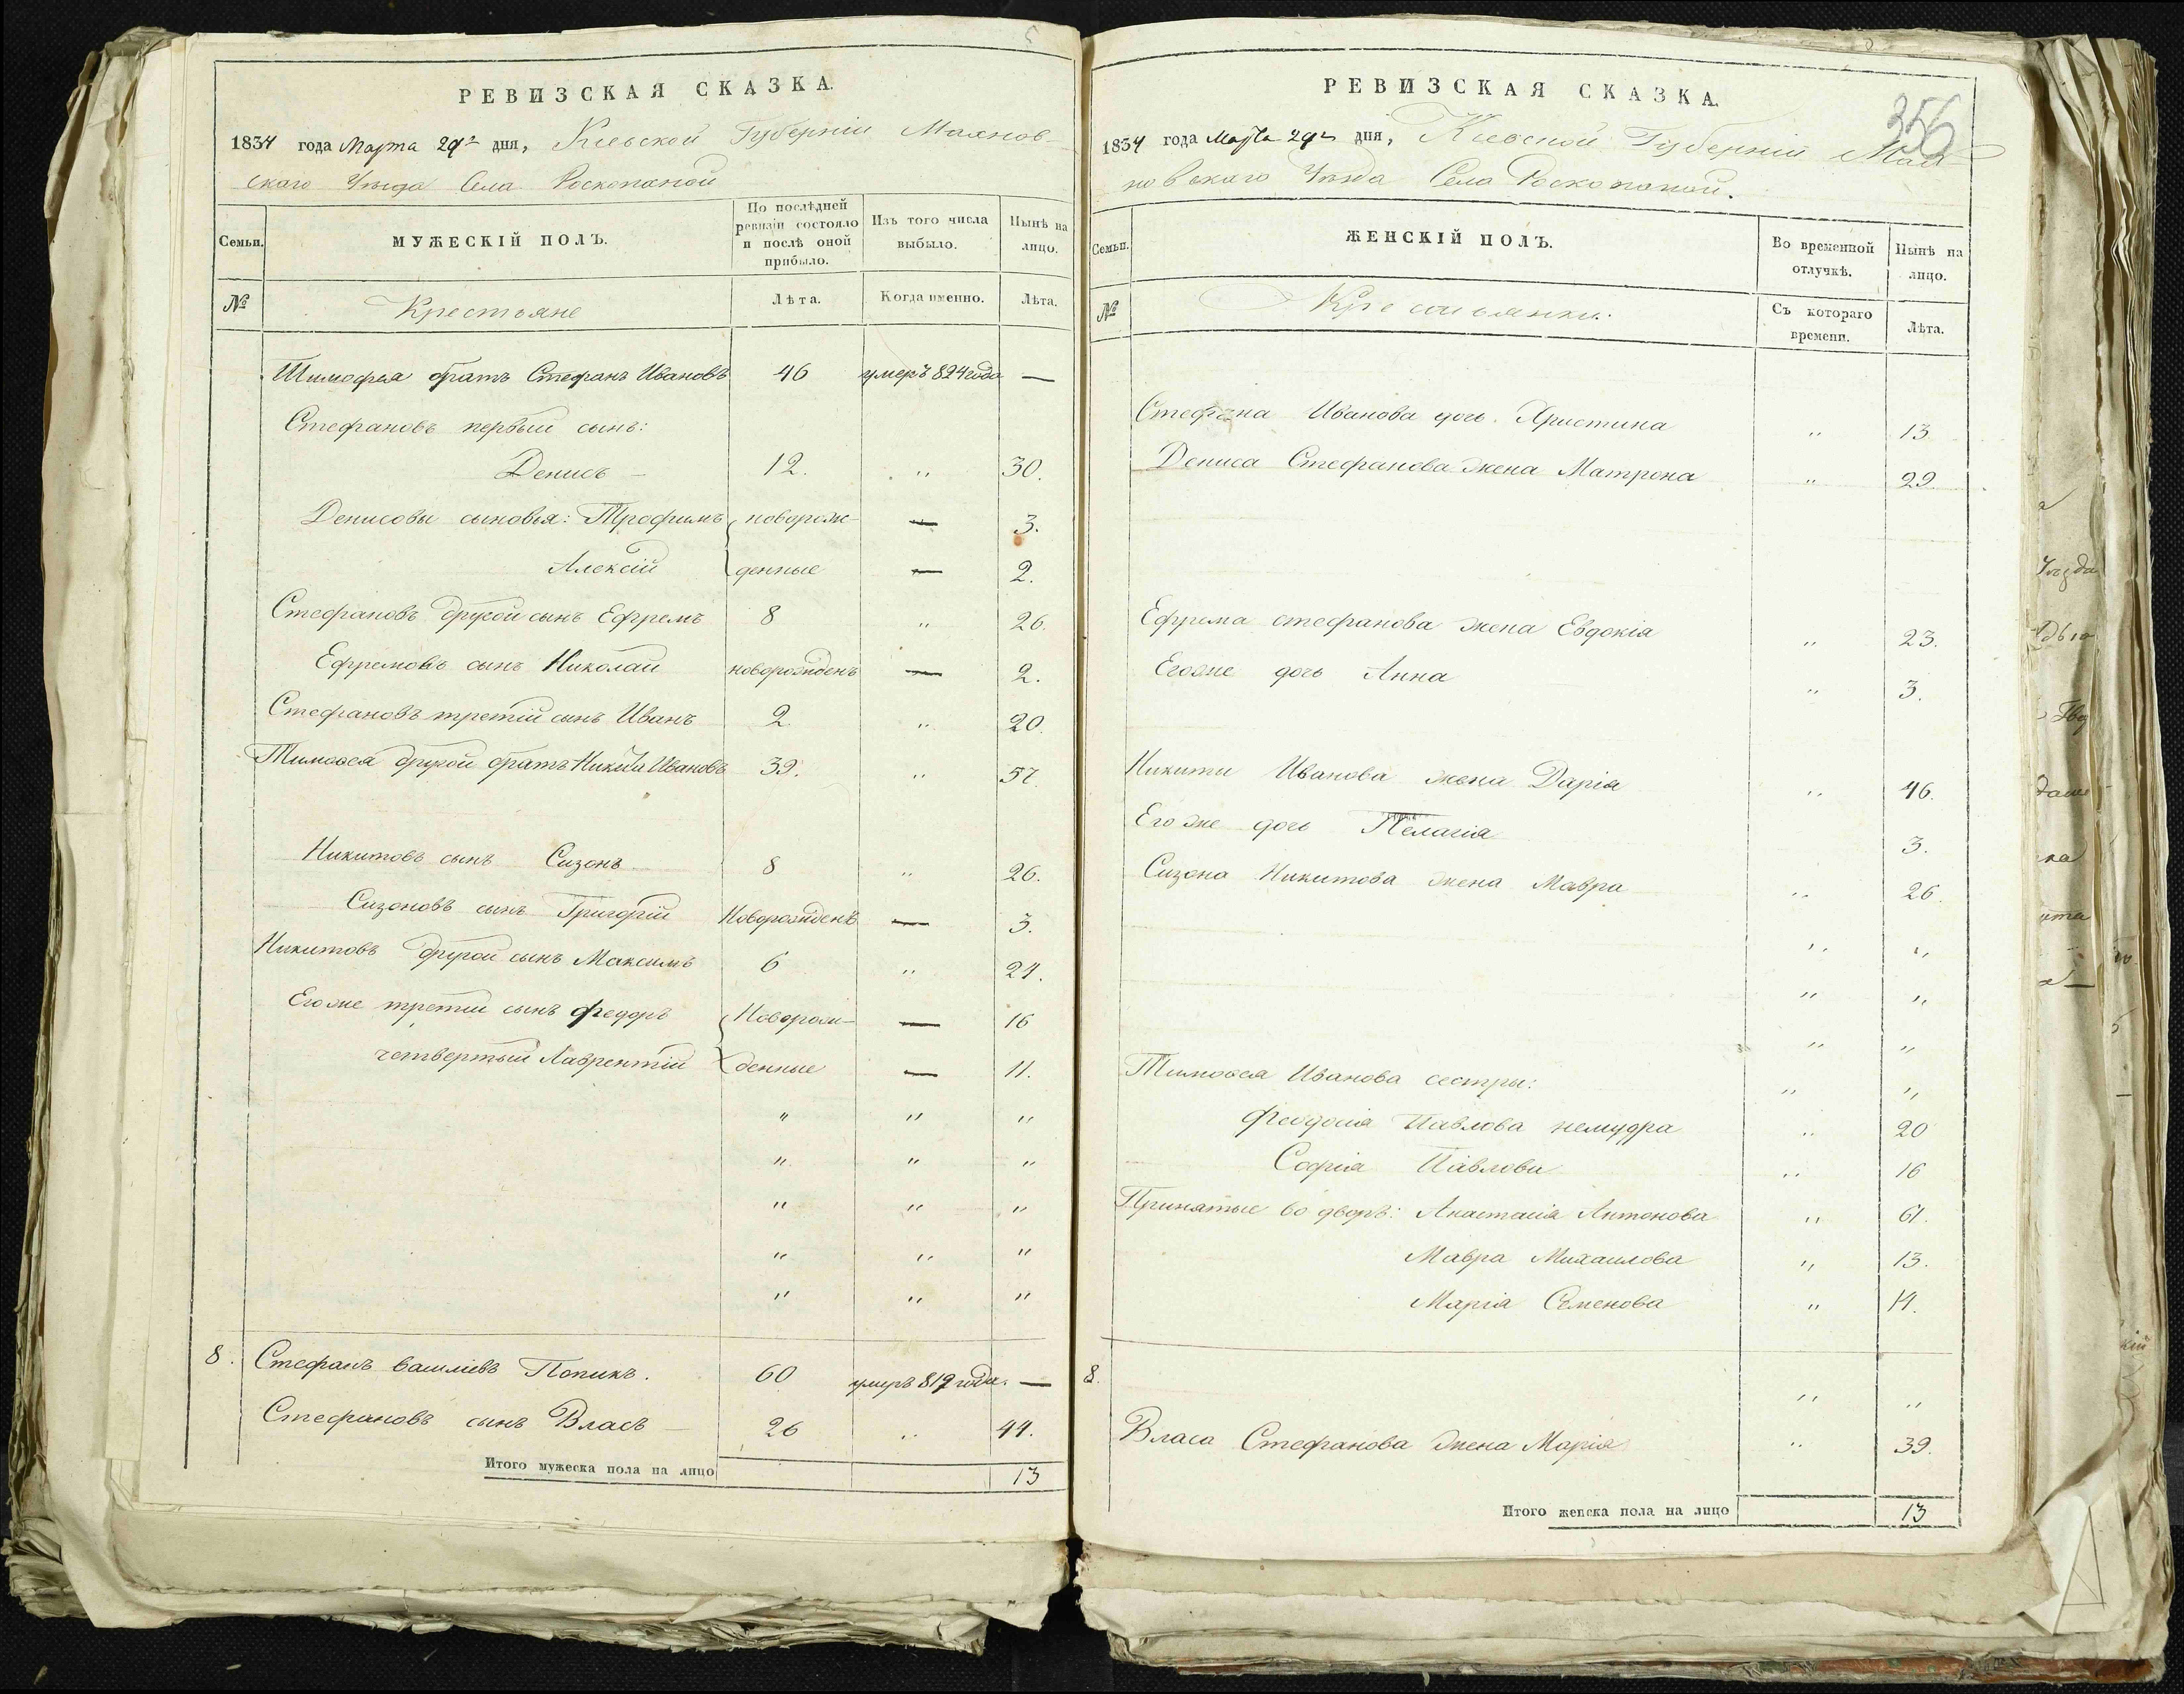 РЕВИЗСКАЯ СКАЗКА.
1834 года Марта 29 дня, Кіевской Губерніи Махнов-
скаго Уѣзда Села Роскопаной
Семьи.
МУЖЕСКІЙ ПОЛЪ.
По послѣдней ревизіи состояло и послѣ оной прибыло.
Изъ того числа выбыло.
Нынѣ на лицо.
№
Крестьяне
Лѣта.
Когда именно.
Лѣта.
Тимофея братъ Стефанъ Ивановъ 46 умеръ 824 года —
Стефановъ первый сынъ:
Денисъ — 12. " 30.
Денисовы сыновья: Трофимъ новорож- — 3.
Алексій денные — 2.
Стефановъ другой сынъ Ефремъ 8 " 26.
Ефремовъ сынъ Николай новорожденъ — 2.
Стефановъ третій сынъ Иванъ 2. " 20.
Тимоѳея другой братъ Никита Ивановъ 39. " 57.
Никитовъ сынъ Сизонъ 8 " 26.
Сизоновъ сынъ Григорій Новорожденъ — 3.
Никитовъ другой сынъ Максимъ 6 " 24.
Егоже третій сынъ Федоръ Новорож- — 16
четвертый Лаврентій денные — 11.
" " "
" " "
" " "
" " "
" " "
8. Стефанъ Василіевъ Попикъ. 60 умеръ 819 года. —
Стефановъ сынъ Власъ — 26 " 44.
Итого мужеска пола на лицо 13
РЕВИЗСКАЯ СКАЗКА.
356
1834 года Марта 29 дня, Кіевской Губерніи Мах-
новскаго Уѣзда Села Роскопаной.
Семьи.
ЖЕНСКІЙ ПОЛЪ.
Во временной отлучкѣ.
Нынѣ на лицо.
№
Крестьянки.
Съ котораго времени.
Лѣта.
Стефана Иванова дочь Христина " 13
Дениса Стефанова жена Матрона " 29
Ефрема стефанова жена Евдокія " 23.
Егоже дочь Анна " 3.
Никиты Иванова жена Дарія " 46.
Егоже дочь Пелагія 3.
Сизона Никитова жена Мавра " 26.
" "
" "
" "
Тимоѳея Иванова сестры: " "
Феодосія Павлова немудра " 20
Софія Павлова " 16
Принятые во дворъ: Анастасія Антонова " 61.
Мавра Михаилова " 13.
Марія Семенова " 14.
8. " "
Власа Стефанова жена Марія " 39.
Итого женска пола на лицо 13